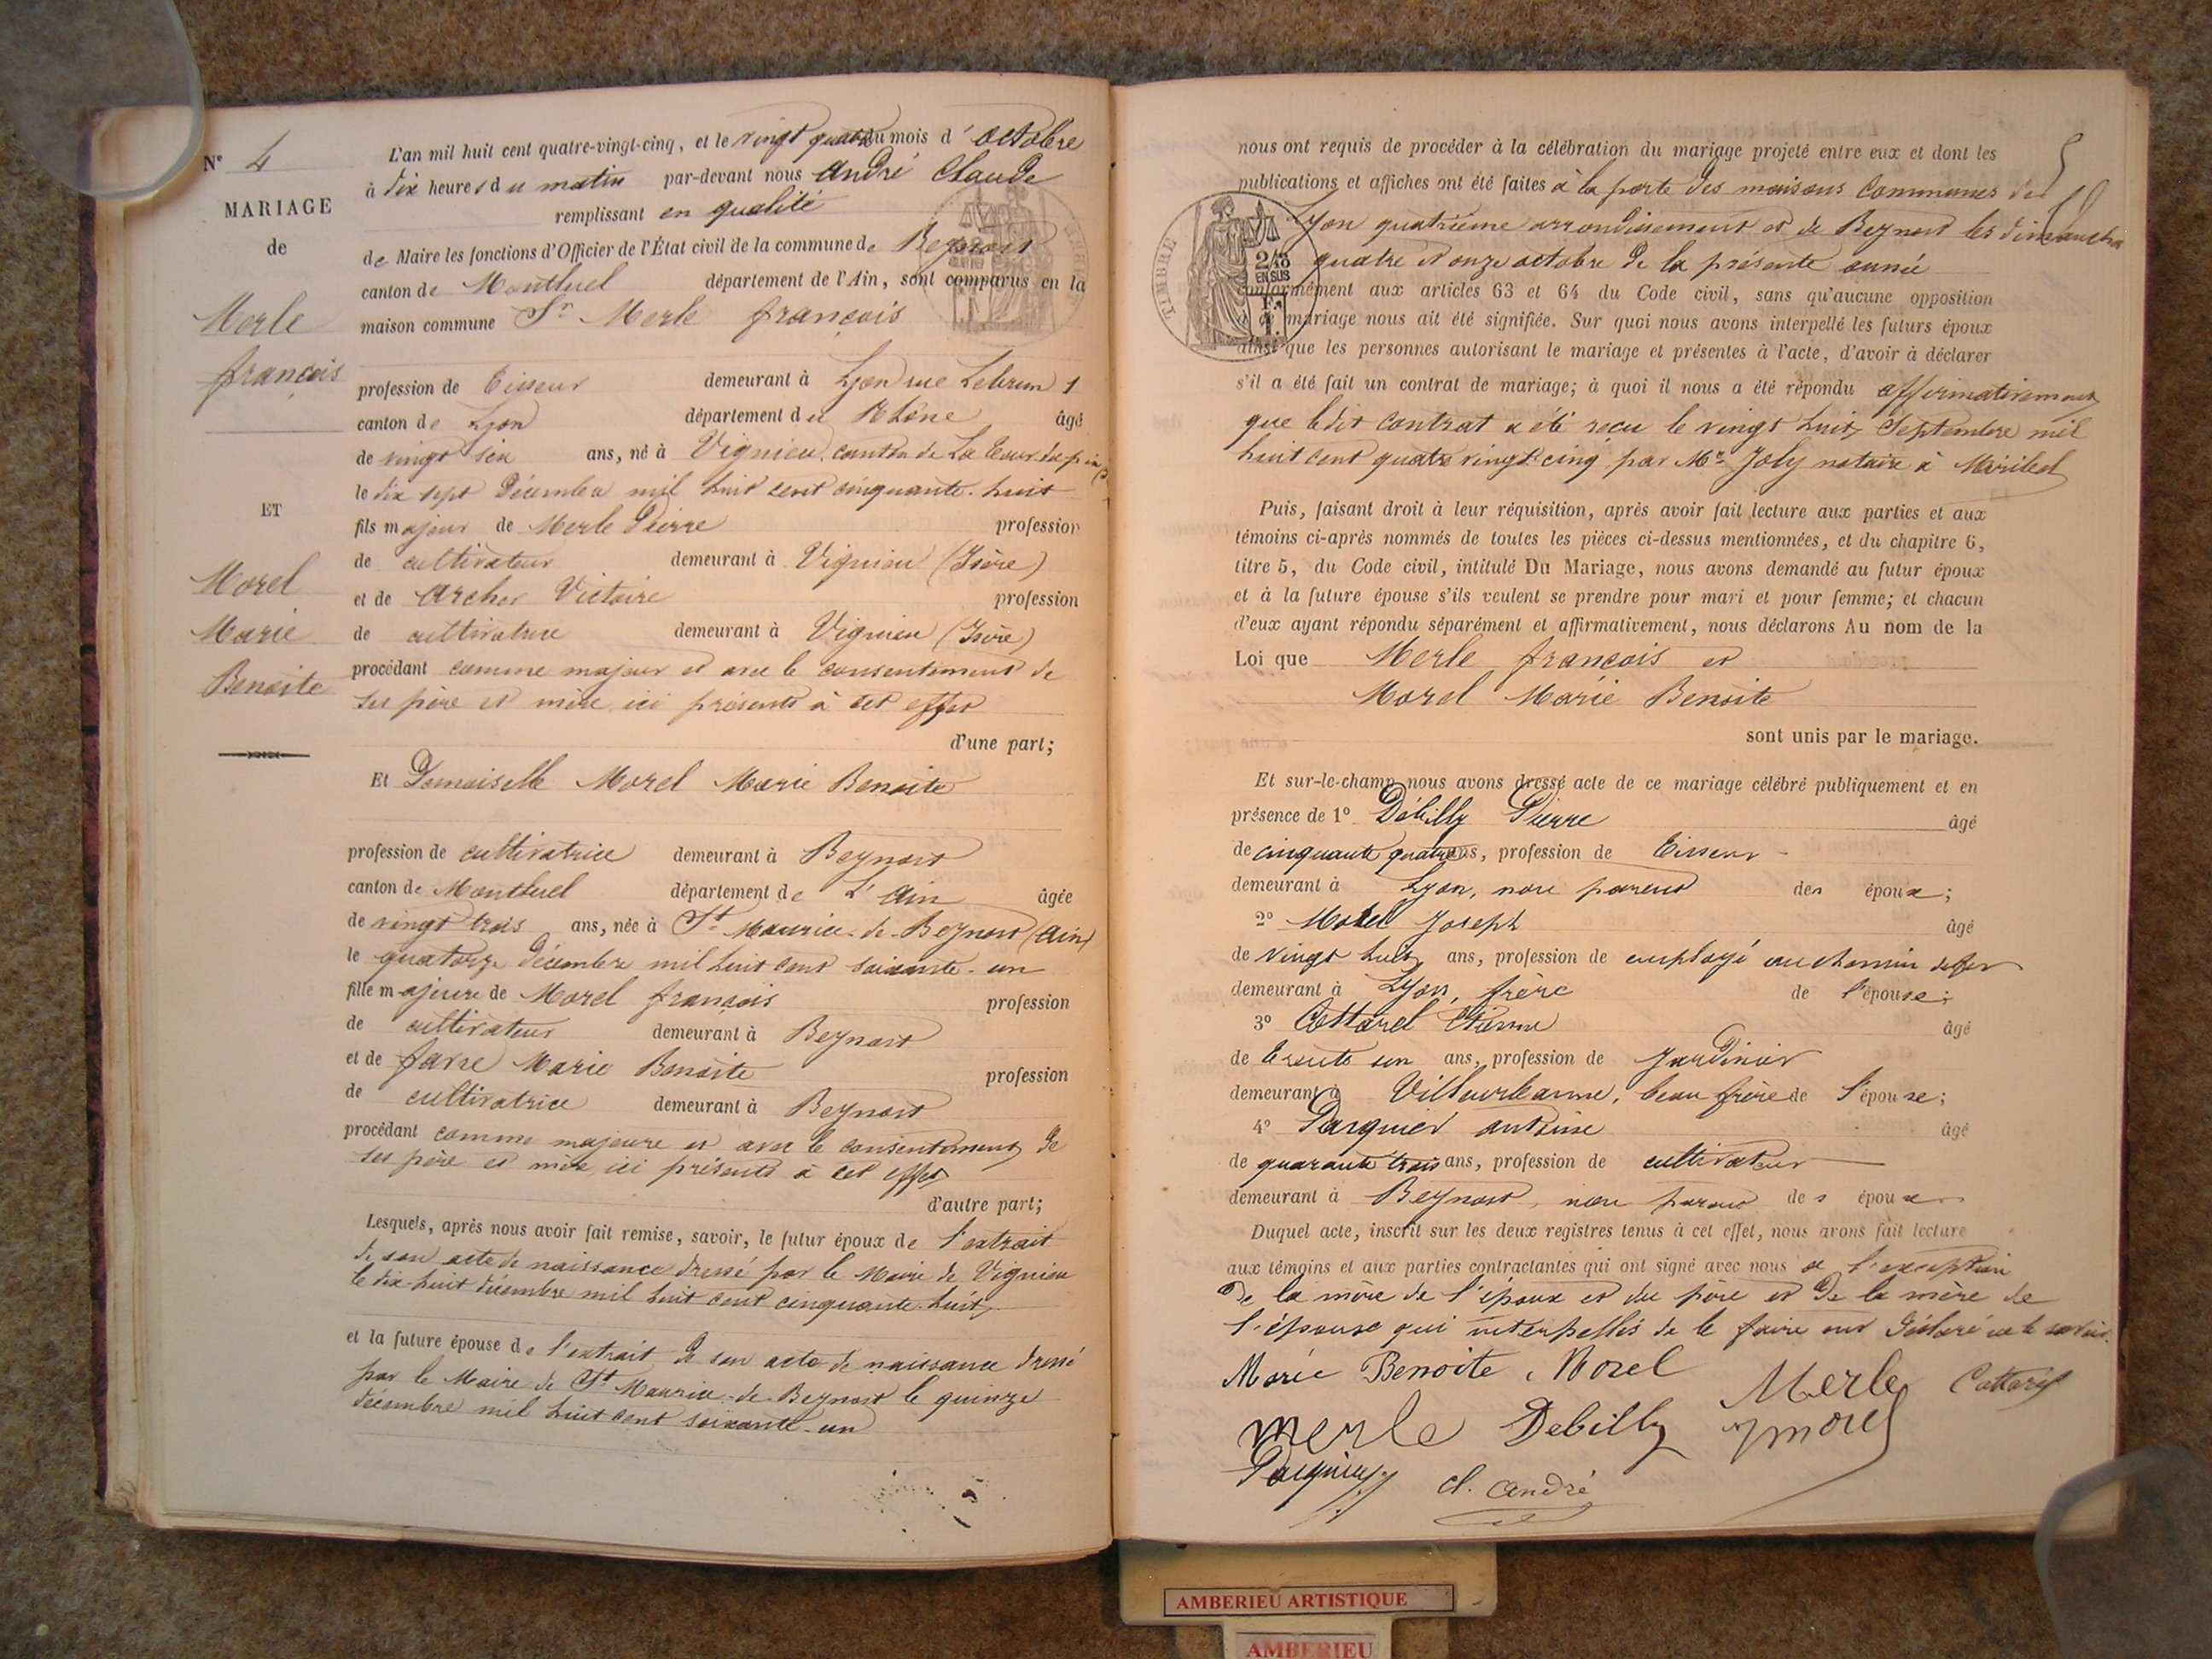 N° 4
MARIAGE
de
Merle
françois
ET
Morel
Marie
Benoite
L'an mil huit cent quatre-vingt-cinq, et le vingt quatre du mois d'octobre
à dix heures du matin par-devant nous André Claude
remplissant en qualité
de Maire les fonctions d'Officier de l'État civil de la commune de Beynost
canton de Montluel département de l'Ain, sont comparus en la
maison commune Sr Merle françois
profession de Tisseur demeurant à Lyon rue Lebrun 1
canton de Lyon département du Rhône âgé
de vingt six ans, né à Vignieu, canton de La Tour du pin
le dix sept Décembre mil huit cent cinquante-huit
fils majeur de Merle Pierre profession
de cultivateur demeurant à Vignieu (Isère)
et de Archer Victoire profession
de cultivatrice demeurant à Vignieu (Isère)
procédant comme majeur et avec le consentement de
ses père et mère ici présents à cet effet
d'une part;
Et Demoiselle Morel Marie Benoite
profession de cultivatrice demeurant à Beynost
canton de Montluel département de L'Ain âgée
de vingt trois ans, née à St Maurice-de-Beynost (Ain)
le quatorze décembre mil huit cent soixante-un
fille majeure de Morel françois profession
de cultivateur demeurant à Beynost
et de favre Marie Benoite profession
de cultivatrice demeurant à Beynost
procédant comme majeure et avec le consentement de
ses père et mère ici présents à cet effet
d'autre part;
Lesquels, après nous avoir fait remise, savoir, le futur époux de l'extrait
de son acte de naissance dressé par le Maire de Vignieu
le dix-huit décembre mil huit cent cinquante-huit
et la future épouse de l'extrait de son acte de naissance dressé
par le Maire de St Maurice-de-Beynost le quinze
décembre mil huit cent soixante-un
5
nous ont requis de procéder à la célébration du mariage projeté entre eux et dont les
publications et affiches ont été faites à la porte des maisons communes de
Lyon quatrième arrondissement et de Beynost les dimanches
quatre et onze octobre de la présente année
conformément aux articles 63 et 64 du Code civil, sans qu'aucune opposition
à ce mariage nous ait été signifiée. Sur quoi nous avons interpellé les futurs époux
ainsi que les personnes autorisant le mariage et présentes à l'acte, d'avoir à déclarer
s'il a été fait un contrat de mariage; à quoi il nous a été répondu affirmativement
que ledit contrat a été reçu le vingt huit Septembre mil
huit cent quatre vingt cinq par Me Joly notaire à Miribel
TIMBRE
2/10
EN SUS
Puis, faisant droit à leur réquisition, après avoir fait lecture aux parties et aux
témoins ci-après nommés de toutes les pièces ci-dessus mentionnées, et du chapitre 6,
titre 5, du Code civil, intitulé Du Mariage, nous avons demandé au futur époux
et à la future épouse s'ils veulent se prendre pour mari et pour femme; et chacun
d'eux ayant répondu séparément et affirmativement, nous déclarons Au nom de la
Loi que Merle françois et
Morel Marie Benoite
sont unis par le mariage.
Et sur-le-champ nous avons dressé acte de ce mariage célébré publiquement et en
présence de 1° Débilly Pierre âgé
de cinquante quatre ans, profession de Tisseur
demeurant à Lyon, non parent des époux;
2° Morel Joseph âgé
de vingt huit ans, profession de employé au chemin de fer
demeurant à Lyon, frère de l'épouse;
3° Cottarel Etienne âgé
de trente un ans, profession de Jardinier
demeurant à Villeurbanne, beau frère de l'épouse;
4° Parquier antoine âgé
de quarante trois ans, profession de cultivateur
demeurant à Beynost, non parent des époux
Duquel acte, inscrit sur les deux registres tenus à cet effet, nous avons fait lecture
aux témoins et aux parties contractantes qui ont signé avec nous à l'exception
de la mère de l'époux et du père et de la mère de
l'épouse qui interpellés de le faire ont déclaré ne le savoir.
Marie Benoite Morel Merle Cottarel
merle Debilly Jmorel
Parquier cl. André
AMBERIEU ARTISTIQUE
AMBERIEU